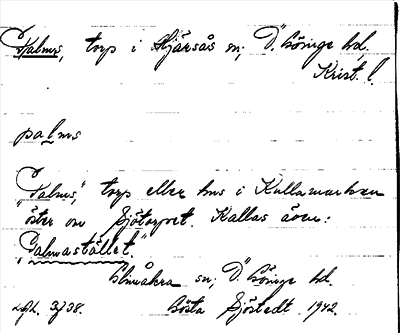 Palms, torp i Hjärsås sn; Ö. Göinge hd,
Krist. l.
palms
"Palms", torp eller hus i Kullamarken
öster om Sjötorpet. Kallas även:
"Palmastället."
Glimåkra sn; Ö. Göinge hd.
Gösta Sjöstedt 1942.